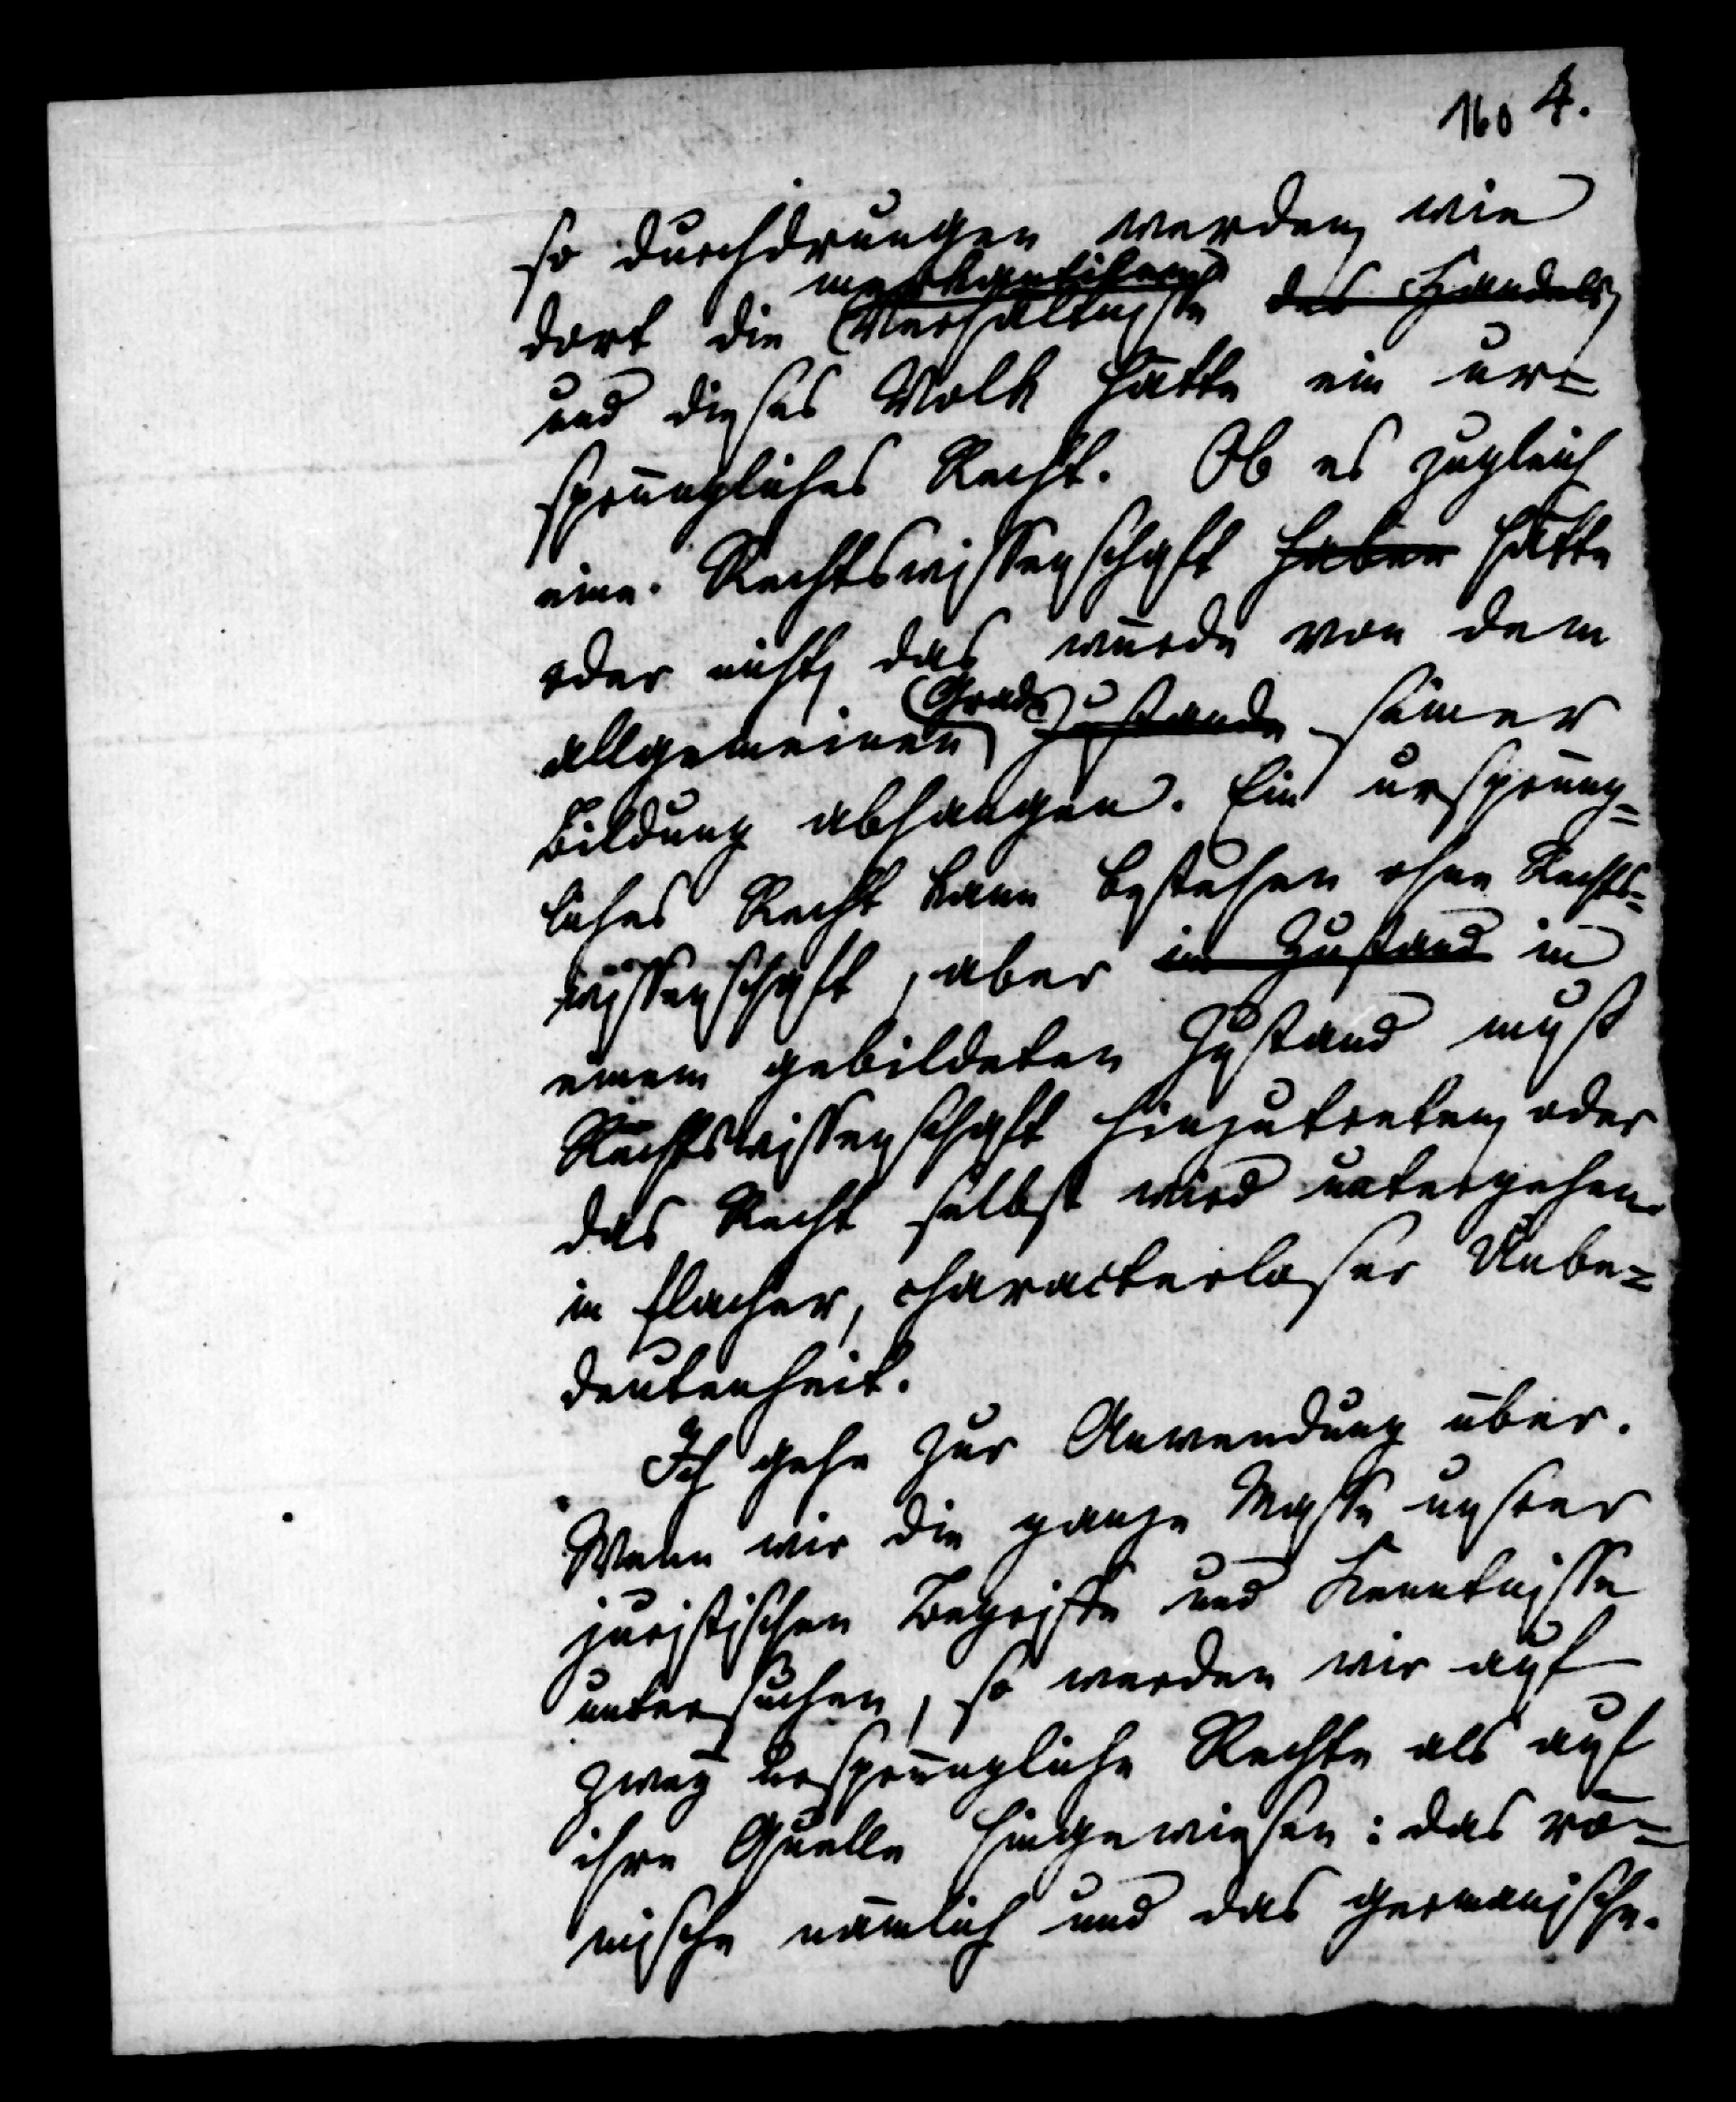 160 4.
so durchdrungen werden, wie
merkantilen
dort die Verhältnisse des Handels,
und dieses Volk hätte ein ur=
sprüngliches Recht. Ob es zugleich
eine Rechtswissenschaft haben hätte
oder nicht, das würde von dem
Grade
allgemeinen Zustande seiner
Bildung abhangen. Ein ursprüng=
liches Recht kann bestehen ohne Rechts=
wissenschaft, aber im Zustand in
einem gebildeten Zustand muß
Rechtswissenschaft hinzutreten, oder
das Recht selbst wird untergehen
in flacher, characterloser Unbe=
deutenheit.
Ich gehe zur Anwendung über.
Wenn wir die ganze Masse unsrer
juristischen Begriffe und Kenntnisse
untersuchen, so werden wir auf
zwey ursprüngliche Rechte als auf
ihre Quelle hingewiesen: das rö=
mische nämlich und das germanische.